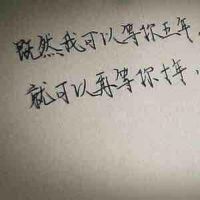 既然我可以等你五年，
就可以再等你十年，